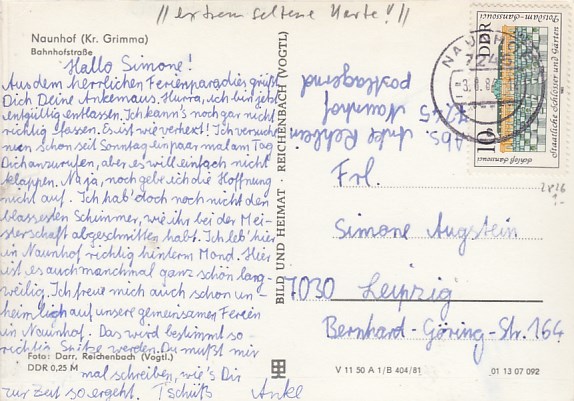 //extrem seltene Karte!//
Naunhof (Kr. Grimma)
Bahnhofstraße
Hallo Simone!
Aus dem herrlichen Ferienparadies grüßt
Dich Deine Ankemaus. Hurra, ich bin jetzt
entgültig entlassen. Ich kann's noch gar nicht
richtig fassen. Es ist wie verhext! Ich versuch'
nun schon seit Sonntag ein paar mal am Tag
Dich anzurufen, aber es will einfach nicht
klappen. Na ja, noch gebe ich die Hoffnung
nicht auf. Ich hab' doch noch nicht den
blassesten Schimmer, wie ihr bei der Mei-
sterschaft abgeschnitten habt. Ich leb' hier
in Naunhof richtig hinterm Mond. Hier
ist es auch manchmal ganz schön lang-
weilig. Ich freue mich auch schon un-
heimlich auf unsere gemeinsamen Ferien
in Naunhof. Das wird bestimmt so-
richtig Spitze werden. Du mußt mir
Foto: Darr, Reichenbach (Vogtl.)
DDR 0,25 M
mal schreiben, wie's Dir
zur Zeit so ergeht. Tschüß Anke
BILD UND HEIMAT · REICHENBACH (VOGTL)
Abs. Anke
7245
Naunhof
postlagernd
NAUNHOF
724
DDR
10
Potsdam-Sanssouci
Staatliche Schlösser und Gärten
Schloß Sanssouci
Frl.
Simone Augstein
7030 Leipzig
Bernhard-Göring-Str. 164
V 11 50 A 1/B 404/81
01 13 07 092